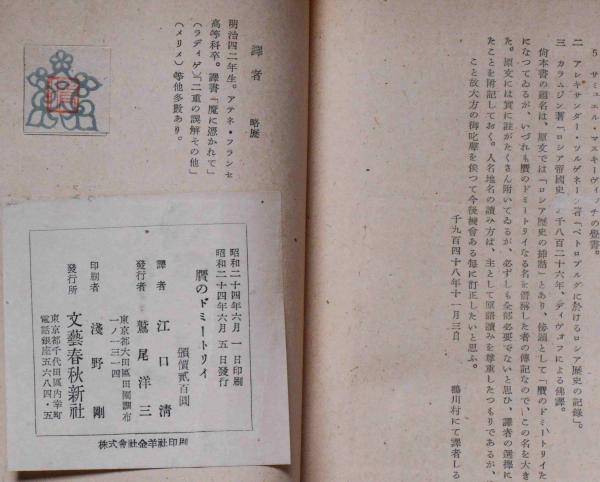 5 サミュエル・マスキーヴィッチの覺書。
二 アレキサンダー・ツルゲネーフ著「ペトロブルグに於けるロシア歷史の記錄」。
三 カラムジン著「ロシア帝國史」千八百二十六年、ディヴォフによる佛譯。
尙本書の題名は、原文では「ロシア歷史の揷話」とあり、傍題として「贋のドミートリイた
になつてゐるが、いづれも贋のドミートリイなる名を僭稱した者の傳記なので、この名を大き
た。原文には實に註がたくさん附いてゐるが、必ずしも全部必要でないと思ひ、譯者の選擇に
たことを附記しておく。人名地名の讀み方は、主として原語讀みを尊重したつもりであるが、
こと故大方の御叱聲を俟つて今後機會ある每に訂正したいと思ふ。
千九百四十八年十一月三日
鴨川村にて譯者しる
譯者 略歷
明治四二年生。アテネ・フランセ
高等科卒。譯書「魔に憑かれて」
(ラディゲ)「二重の誤解その他」
(メリメ)等他多數あり。
昭和二十四年六月一日印刷
昭和二十四年六月五日發行
贋のドミートリイ
頒價貳百圓
譯者 江口清
發行者 鷲尾洋三
東京都大田區田園調布
一ノ一三一四
印刷者 淺野剛
發行所 文藝春秋新社
東京都千代田區內幸町
電話銀座五六八四・五
株式會社金羊社印刷